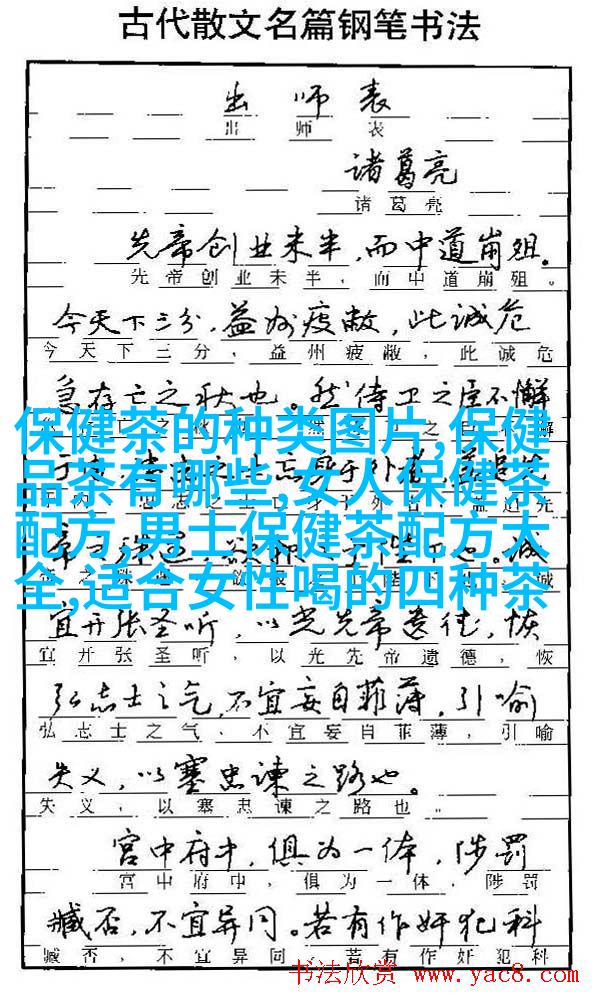 古代散文名篇钢笔书法
出师表
出师表
诸葛亮
诸葛亮
先帝创业未半,而中道崩殂。
先帝创业未半,而中道崩殂。
今天下三分,益州疲敝,此诚危
今天下三分,益州疲敝,此诚危
急存亡之秋也。然侍卫之臣不懈
保健茶的种类图片,保健
品茶有哪些,女人保健茶
配方,男士保健茶配方大
全,适合女性喝的四种茶
宜开张圣听,以光先帝遗德,恢
宜开张圣听,以光先帝遗德,恢
弘志士之气,不宜妄自菲薄,引喻
弘志士之气,不宜妄自菲薄,引喻
失义,以塞忠谏之路也。
失义,以塞忠谏之路也。
宫中府中,俱为一体,陟罚
宫中府中,俱为一体,陟罚
臧否,不宜异同。若有作奸犯科
臧否,不宜异同。若有作奸犯科
书法欣赏 www.yac8.com